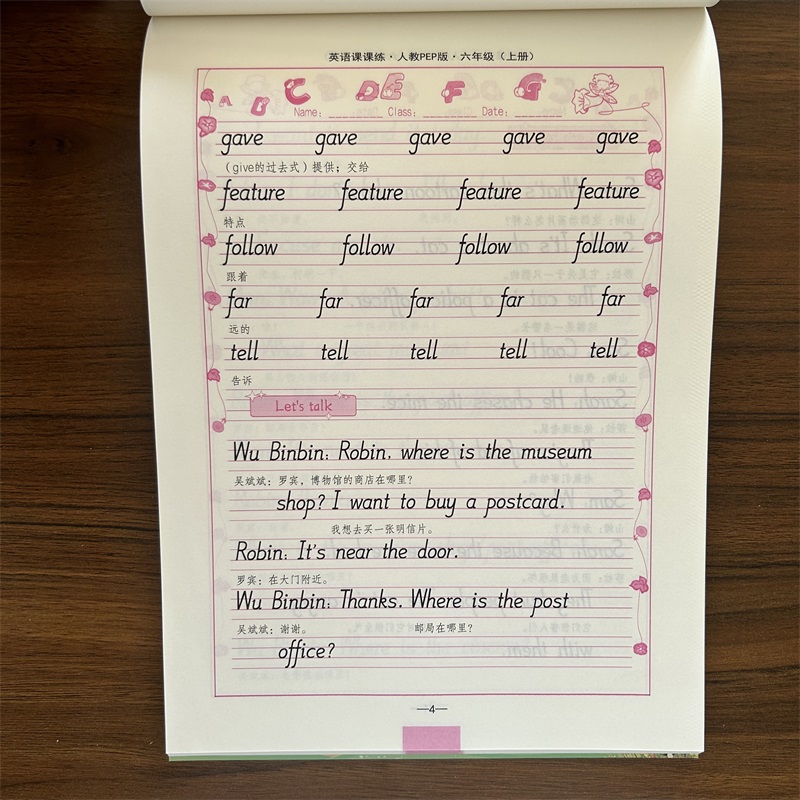 英语课课练·人教PEP版·六年级（上册）
A B C D E F G
Name: ________ Class: ________ Date: ________
gave gave gave gave gave
（give的过去式）提供；交给
feature feature feature feature
特点
follow follow follow follow
跟着
far far far far far
远的
tell tell tell tell tell
告诉
Let's talk
Wu Binbin: Robin, where is the museum
吴斌斌：罗宾，博物馆的商店在哪里？
shop? I want to buy a postcard.
我想去买一张明信片。
Robin: It's near the door.
罗宾：在大门附近。
Wu Binbin: Thanks. Where is the post
吴斌斌：谢谢。 邮局在哪里？
office?
—4—